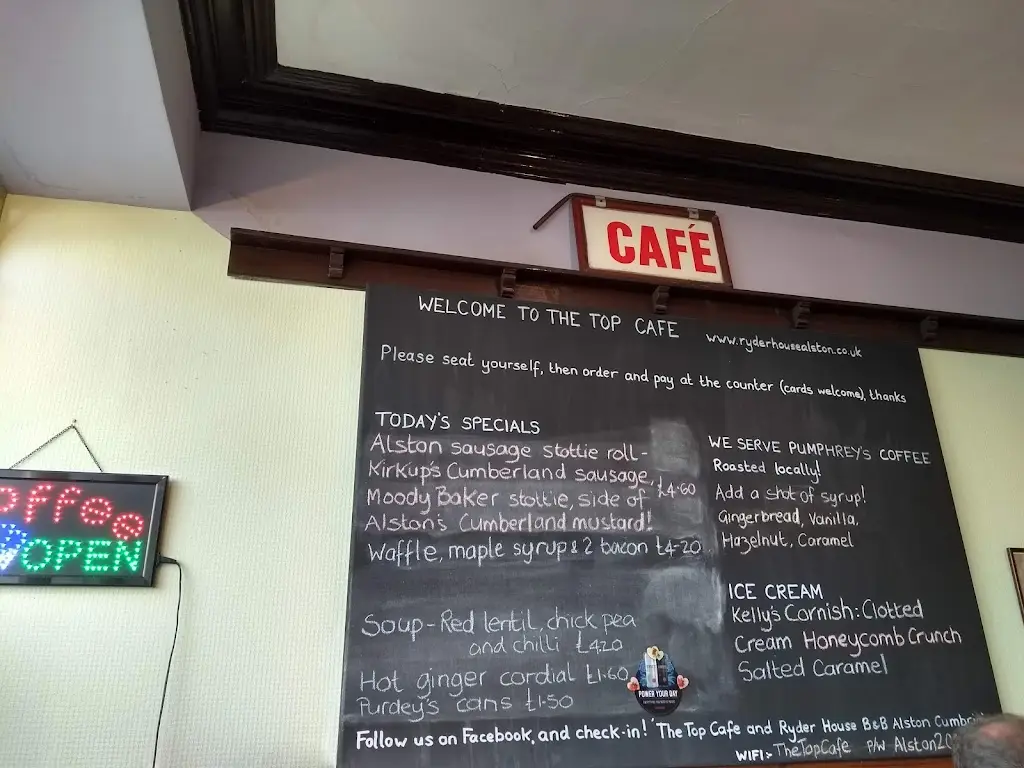 CAFÉ
WELCOME TO THE TOP CAFE
www.ryderhousealston.co.uk
Please seat yourself, then order and pay at the counter (cards welcome), thanks
TODAY'S SPECIALS
Alston sausage stottie roll-
Kirkup's Cumberland sausage, £4.60
Moody Baker stottie, side of
Alston's Cumberland mustard!
Waffle, maple syrup & 2 bacon £4-20
Soup - Red lentil, chick pea
and chilli £4.20
Hot ginger cordial £1.60
Purdey's cans £1.50
WE SERVE PUMPHREY'S COFFEE
Roasted locally!
Add a shot of syrup!
Gingerbread, Vanilla,
Hazelnut, Caramel
ICE CREAM
Kelly's Cornish: Clotted
Cream Honeycomb Crunch
Salted Caramel
POWER YOUR DAY
Follow us on Facebook, and check-in! 'The Top Cafe and Ryder House B&B Alston
WIFI:- TheTopCafe P/W
offee
OPEN